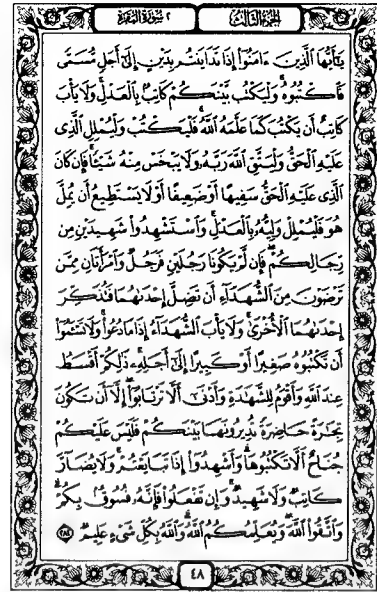 الجزء الثالث ٢ سورة البقرة
يَٰٓأَيُّهَا ٱلَّذِينَ ءَامَنُوٓا۟ إِذَا تَدَايَنتُم بِدَيْنٍ إِلَىٰٓ أَجَلٍ مُّسَمًّى
فَٱكْتُبُوهُ ۚ وَلْيَكْتُب بَّيْنَكُمْ كَاتِبٌۢ بِٱلْعَدْلِ ۚ وَلَا يَأْبَ
كَاتِبٌ أَن يَكْتُبَ كَمَا عَلَّمَهُ ٱللَّهُ ۚ فَلْيَكْتُبْ وَلْيُمْلِلِ ٱلَّذِى
عَلَيْهِ ٱلْحَقُّ وَلْيَتَّقِ ٱللَّهَ رَبَّهُۥ وَلَا يَبْخَسْ مِنْهُ شَيْـًٔا ۚ فَإِن كَانَ
ٱلَّذِى عَلَيْهِ ٱلْحَقُّ سَفِيهًا أَوْ ضَعِيفًا أَوْ لَا يَسْتَطِيعُ أَن يُمِلَّ
هُوَ فَلْيُمْلِلْ وَلِيُّهُۥ بِٱلْعَدْلِ ۚ وَٱسْتَشْهِدُوا۟ شَهِيدَيْنِ مِن
رِّجَالِكُمْ ۖ فَإِن لَّمْ يَكُونَا رَجُلَيْنِ فَرَجُلٌ وَٱمْرَأَتَانِ مِمَّن
تَرْضَوْنَ مِنَ ٱلشُّهَدَآءِ أَن تَضِلَّ إِحْدَىٰهُمَا فَتُذَكِّرَ
إِحْدَىٰهُمَا ٱلْأُخْرَىٰ ۚ وَلَا يَأْبَ ٱلشُّهَدَآءُ إِذَا مَا دُعُوا۟ ۚ وَلَا تَسْـَٔمُوٓا۟
أَن تَكْتُبُوهُ صَغِيرًا أَوْ كَبِيرًا إِلَىٰٓ أَجَلِهِۦ ۚ ذَٰلِكُمْ أَقْسَطُ
عِندَ ٱللَّهِ وَأَقْوَمُ لِلشَّهَٰدَةِ وَأَدْنَىٰٓ أَلَّا تَرْتَابُوٓا۟ ۖ إِلَّآ أَن تَكُونَ
تِجَٰرَةً حَاضِرَةً تُدِيرُونَهَا بَيْنَكُمْ فَلَيْسَ عَلَيْكُمْ
جُنَاحٌ أَلَّا تَكْتُبُوهَا ۗ وَأَشْهِدُوٓا۟ إِذَا تَبَايَعْتُمْ ۚ وَلَا يُضَآرَّ
كَاتِبٌ وَلَا شَهِيدٌ ۚ وَإِن تَفْعَلُوا۟ فَإِنَّهُۥ فُسُوقٌۢ بِكُمْ ۗ
وَٱتَّقُوا۟ ٱللَّهَ ۖ وَيُعَلِّمُكُمُ ٱللَّهُ ۗ وَٱللَّهُ بِكُلِّ شَىْءٍ عَلِيمٌ ٢٨٢
٤٨